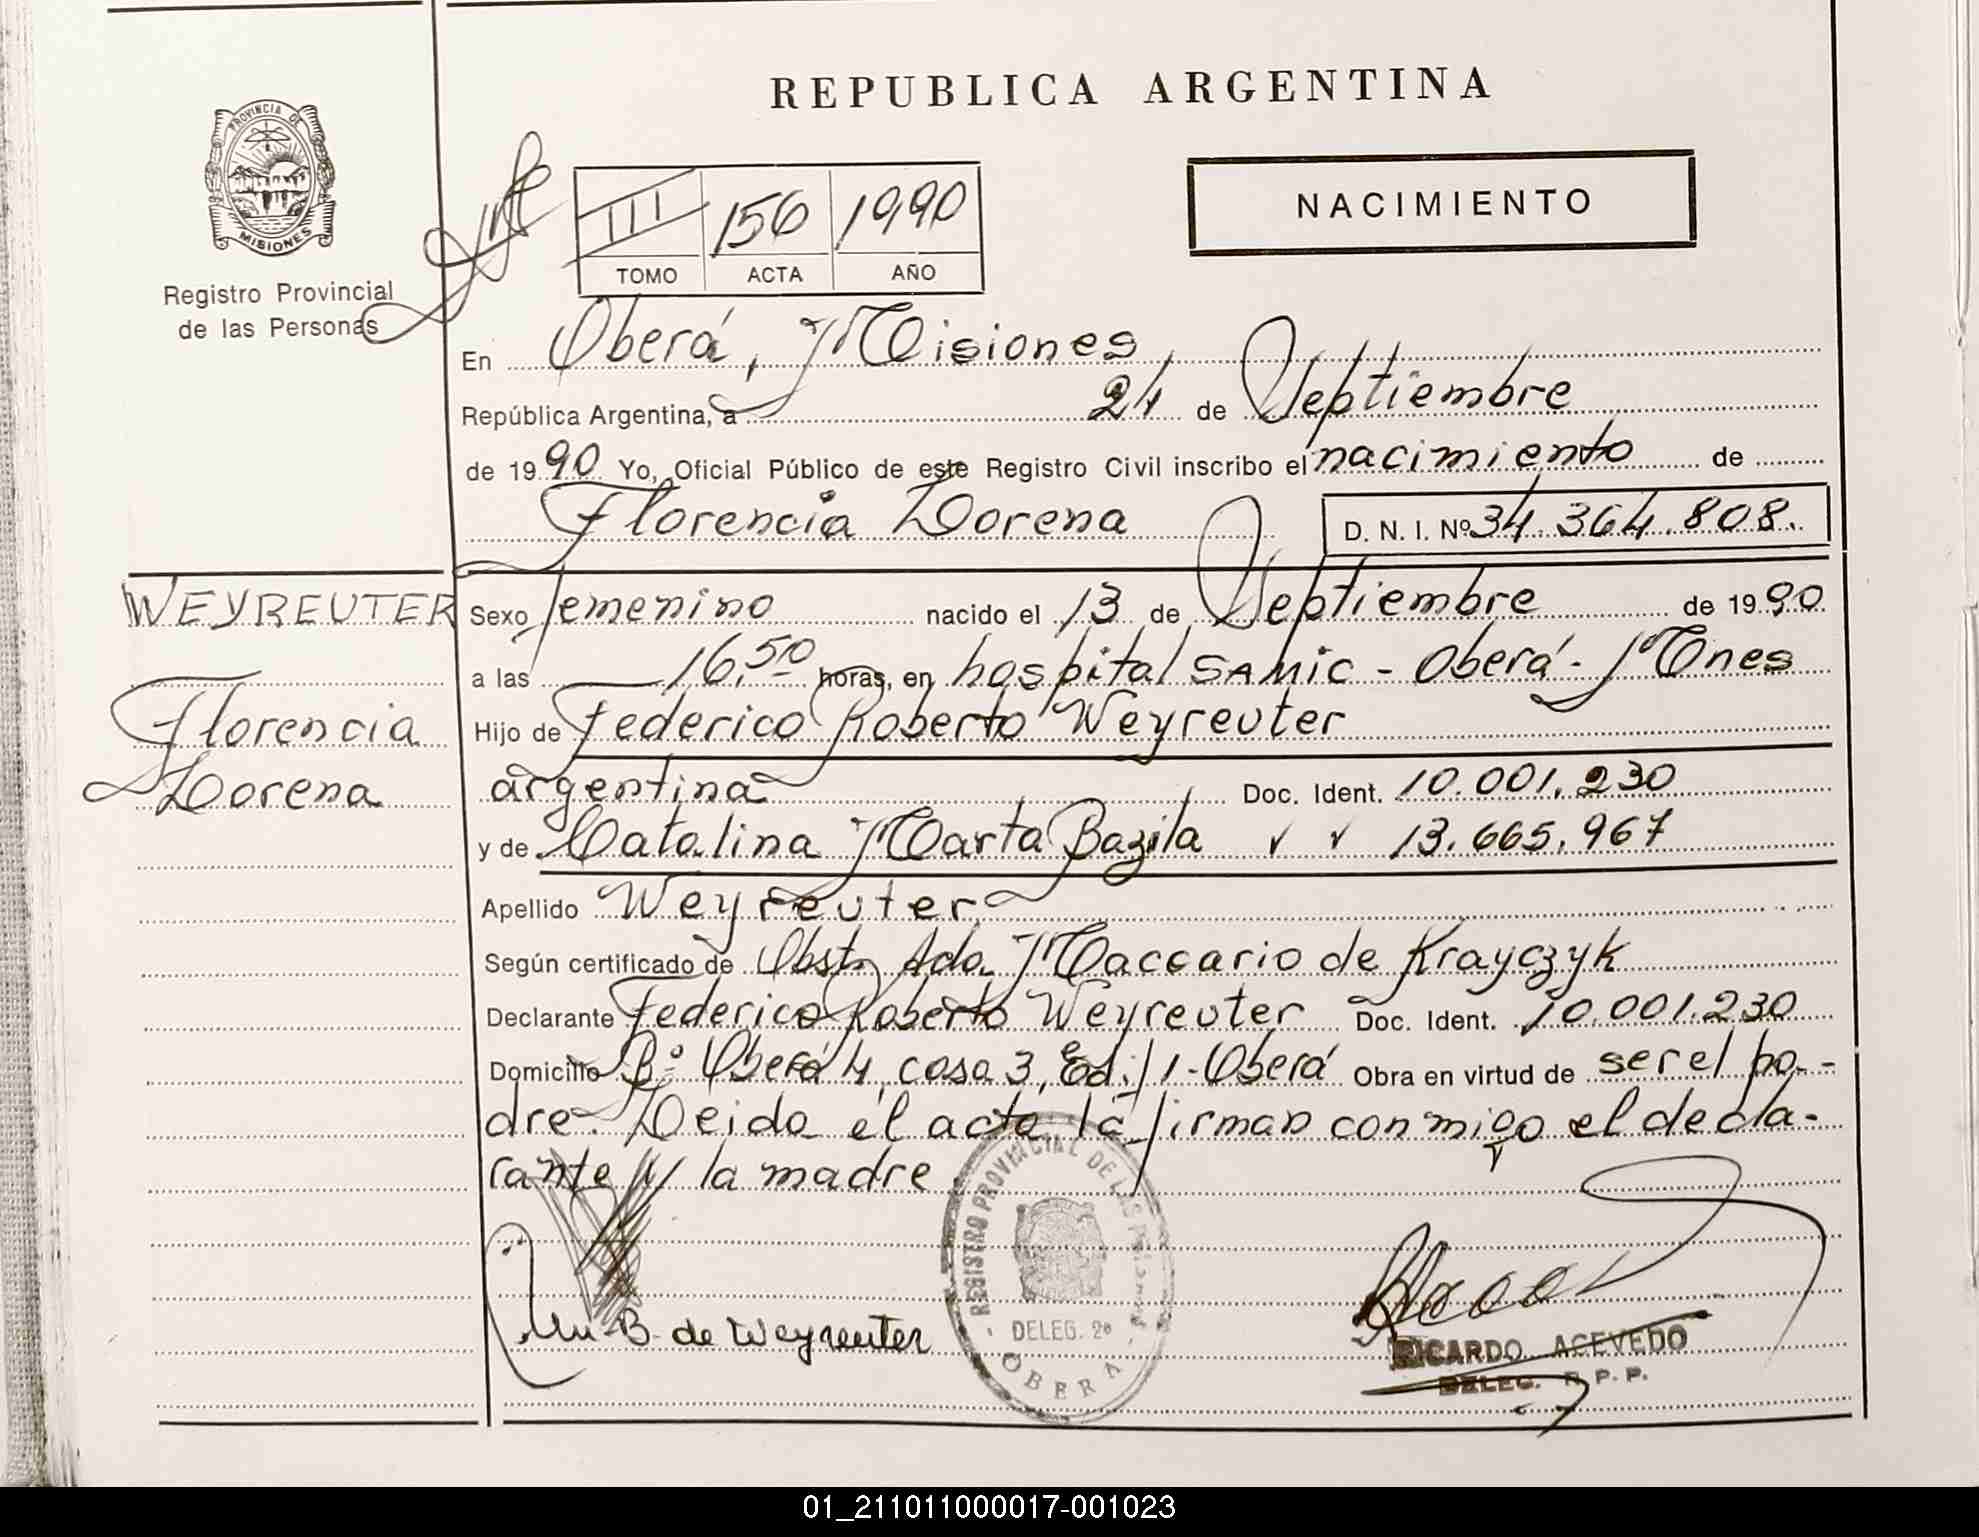 REPUBLICA ARGENTINA
PROVINCIA DE
MISIONES
Registro Provincial
de las Personas
III 156 1990
TOMO ACTA AÑO
NACIMIENTO
En Oberá, Misiones
República Argentina, a 24 de Septiembre
de 1990 Yo, Oficial Público de este Registro Civil inscribo el nacimiento de
Florencia Lorena D. N. I. Nº 34.364.808.
WEYREUTER
Florencia
Lorena
Sexo femenino nacido el 13 de Septiembre de 1990
a las 16,50 horas, en hospital SAMIC - Oberá - Mnes
Hijo de Federico Roberto Weyreuter
argentina Doc. Ident. 10.001.230
y de Catalina Marta Bazila 13.665.967
Apellido Weyreuter
Según certificado de Obst. Ada Maccario de Krayczyk
Declarante Federico Roberto Weyreuter Doc. Ident. 10.001.230
Domicilio Bº Oberá 4, casa 3, Edif 1 - Oberá Obra en virtud de ser el pa-
dre. Leida el acta la firman conmigo el decla-
rante y la madre
B. de Weyreuter
REGISTRO PROVINCIAL DE LAS PERSONAS
DELEG. 2ª
OBERA
RICARDO ACEVEDO
DELEG. R.P.P.
01_211011000017-001023